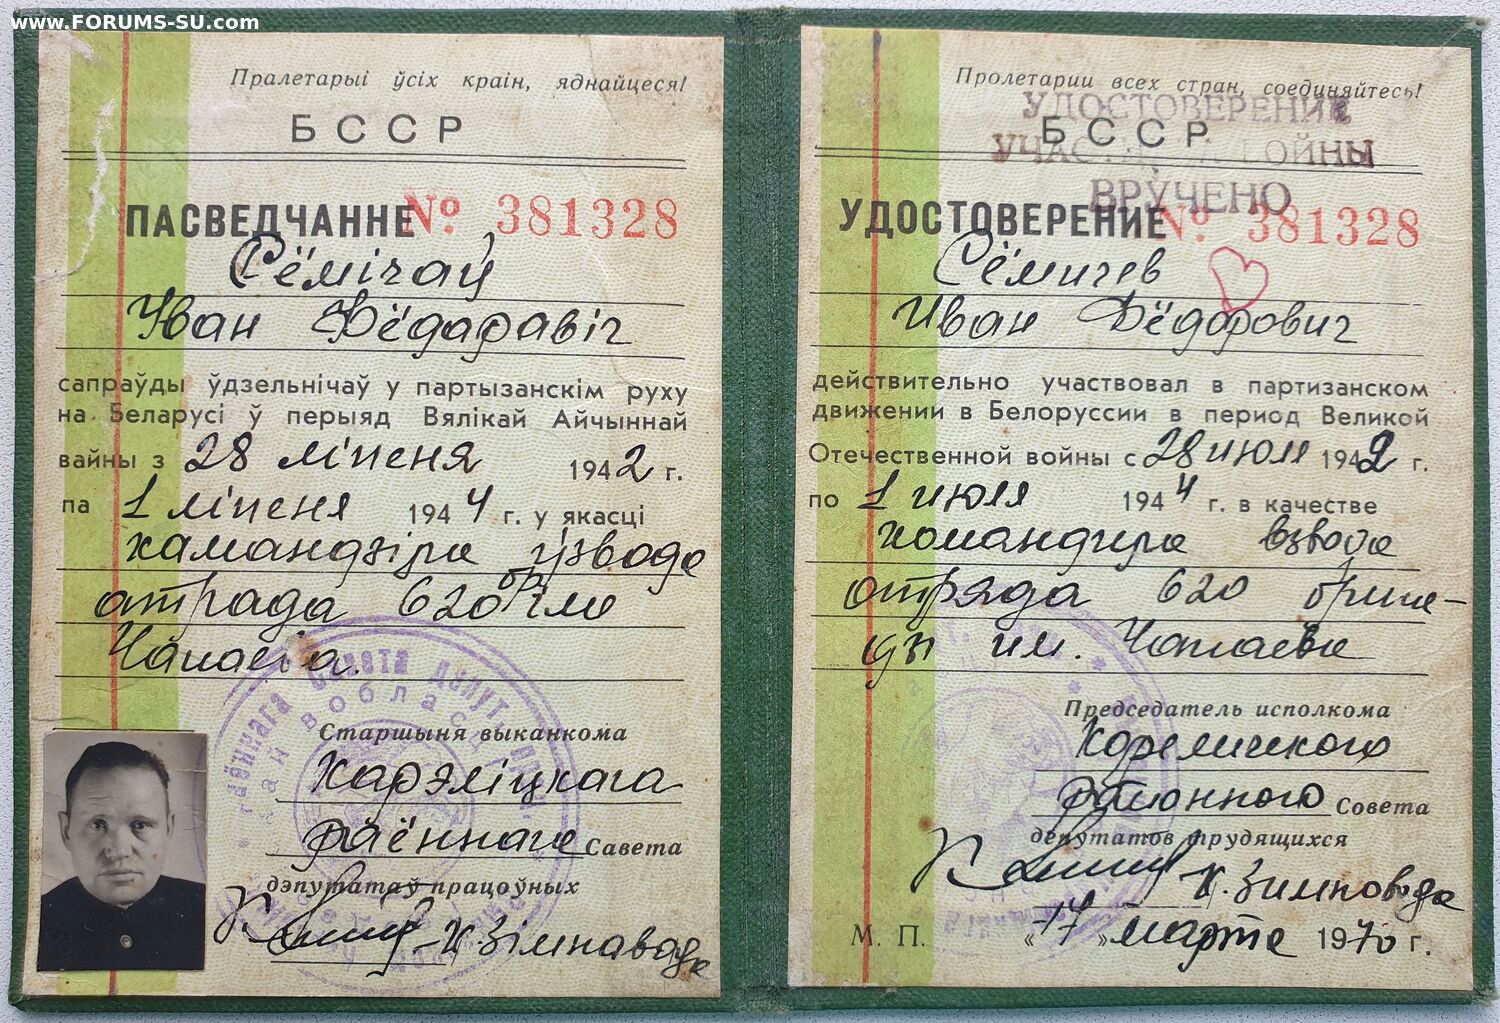 www.FORUMS-SU.com
Пралетарыі ўсіх краін, яднайцеся!
БССР
ПАСВЕДЧАННЕ № 381328
Сёмічаў
Іван Фёдаравіч
сапраўды ўдзельнічаў у партызанскім руху
на Беларусі ў перыяд Вялікай Айчыннай
вайны з 28 ліпеня 1942 г.
па 1 ліпеня 1944 г. у якасці
камандзіра ўзвода
атрада 620 бр. імя
Чапаева.
Старшыня выканкома
Карэліцкага
раённага Савета
дэпутатаў працоўных
К. Зімнавода
Пролетарии всех стран, соединяйтесь!
БССР
УДОСТОВЕРЕНИЕ
ВОЙНЫ
ВРУЧЕНО
УДОСТОВЕРЕНИЕ № 381328
Сёмичев
Иван Фёдорович
действительно участвовал в партизанском
движении в Белоруссии в период Великой
Отечественной войны с 28 июля 1942 г.
по 1 июля 1944 г. в качестве
командира взвода
отряда 620 брига-
ды им. Чапаева
Председатель исполкома
Кореличского
районного Совета
депутатов трудящихся
К. Зимновода
М. П. «17» марта 1970 г.